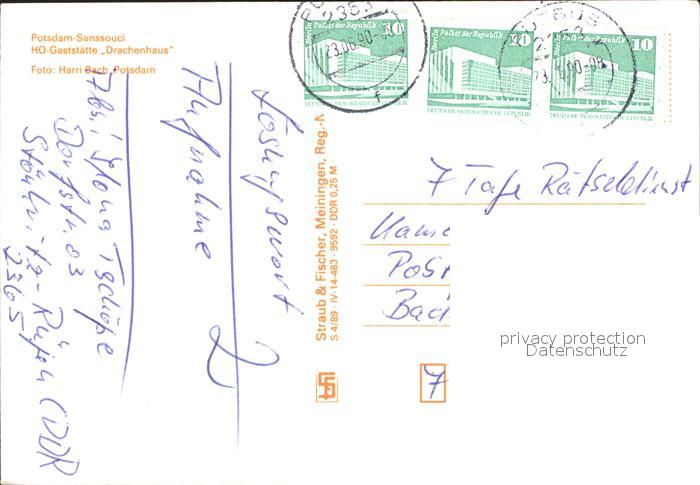 Potsdam-Sanssouci
HO-Gaststätte „Drachenhaus"
Foto: Harri Bach, Potsdam
Losungswort
Aufnahme
2
Abs.
Dorfstr. 83
2365
(DDR
Straub & Fischer, Meiningen, Reg.-N
S 4/89 · IV-14-483 · 9592 · DDR 0,25 M
2383
23.06.90
Berlin Palast der Republik
10
DEUTSCHE DEMOKRATISCHE REPUBLIK
Berlin Palast der Republik
10
DEUTSCHE DEMOKRATISCHE REPUBLIK
Palast der Republik
10
DEUTSCHE DEMOKRATISCHE REPUBLIK
7 Tage Rätseldienst
Post
Bad
7
privacy protection
Datenschutz